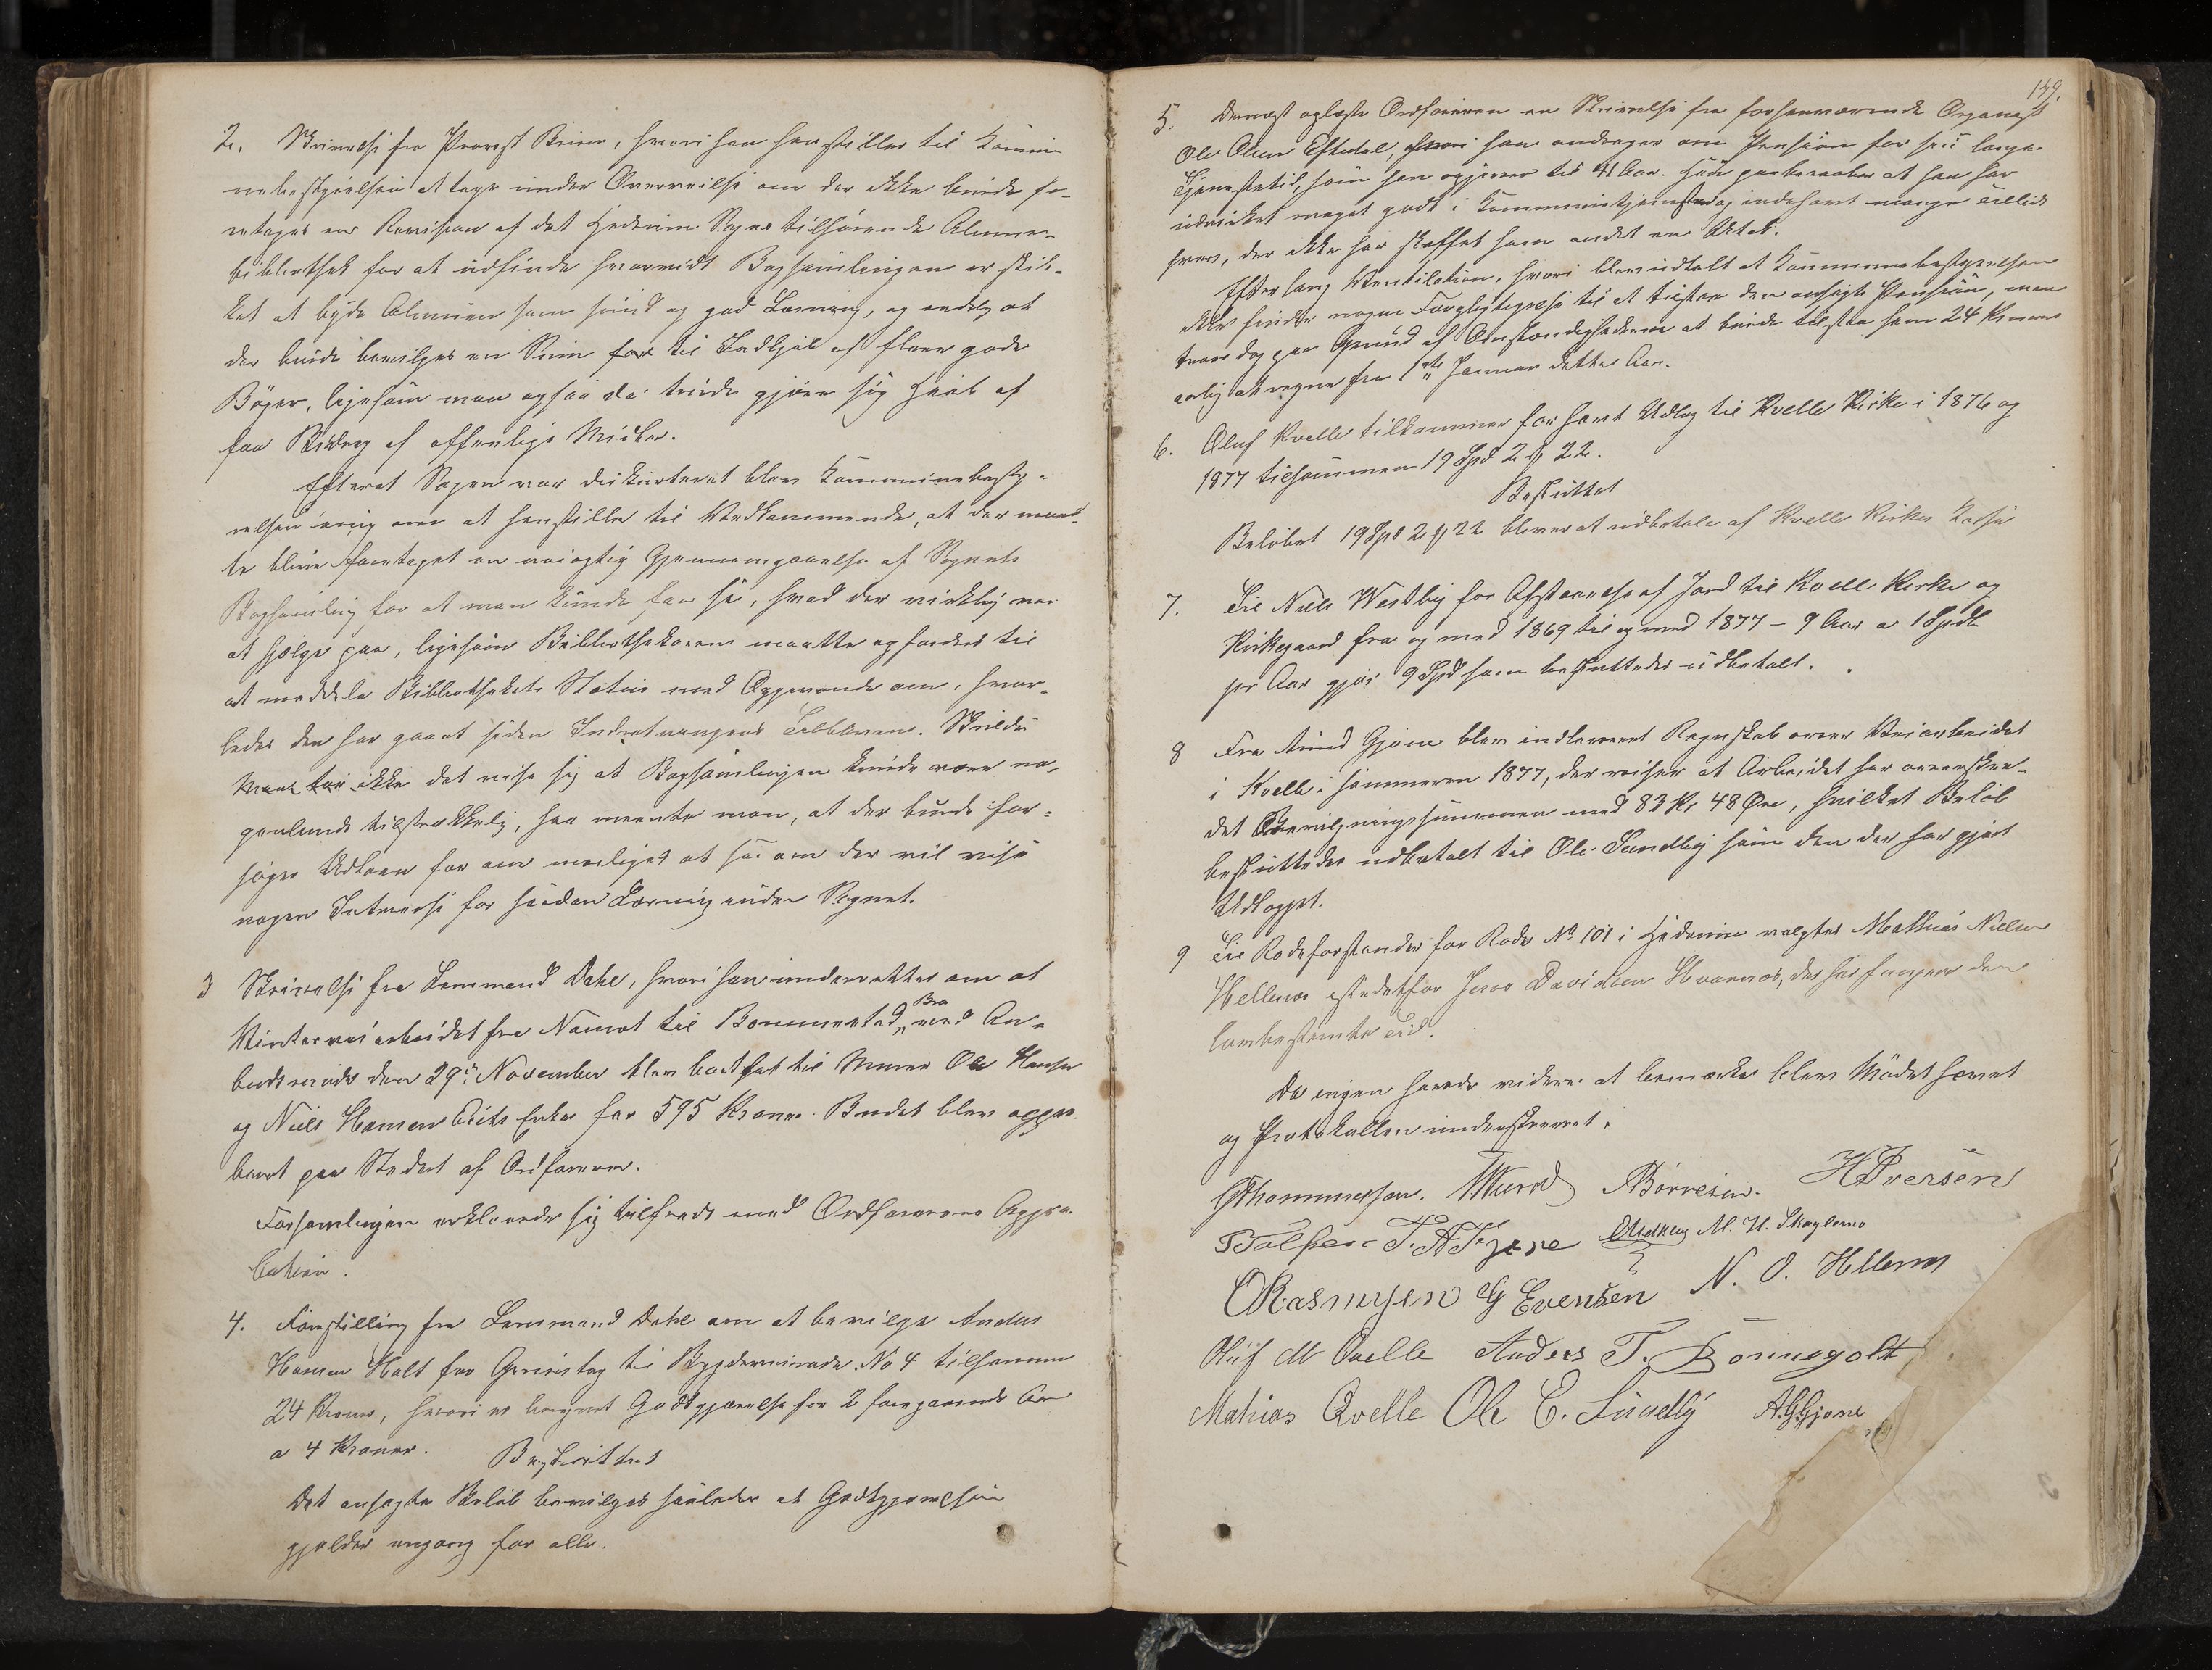 2. Skrivelse fra Provst Brinn, hvori han henstiller til Kommu-
nebestyrelsen at tage under Overveielse om der ikke burde fo-
retages en Revision af det Hedrum Sogn tilhørende Almue-
bibliothek for at udfinde hvorvidt Bogsamlingen er skik-
ket at byde Almuen sam sund og god Læsning, og endelig at
der burde bevilges en Sum for til Indkjøb af flere gode
Bøger, ligesom man ogsaa da turde gjøre sig Haab af
faa Bidrag af offentlige Midler.
Efterat Sagen var diskuteret blev Kommunebesty-
relsen enig om at henstille til Vedkommende, at der maat-
te blive foretaget en nøiagtig Gjennemgaaelse af Sognets
Bogsamling for at man kunde faa se, hvad der virkelig var
at hjælpe paa, ligesom Bibliothekaren maatte opfordres til
at meddele Bibliothekets Status med Opgivende om, hvor-
ledes den har gaaet siden Indretningens Tilbliven. Skulde
Man før ikke det vise sig at Bogsamlingen kunde være no-
genlunde tilstrækkelig, saa meente man, at der burde for-
søges Udlaan for om muligt at see om der vil vise
nogen Interesse for saadan Læsning inden Sognet.
3 Skrivelse fra Lensmand Dahl, hvori han underretter om at
Vinterveiarbeidet fra Nomot til Bommestad Bro ved An-
budsmøde den 29de November blev bortsat til Murer Ole Hansen
og Niels Hansen Eiks Enke for 595 Kroner. Budet blev appro-
beret paa Stedet af Ordføreren.
Forsamlingen erklærede sig tilfreds med Ordførerens Appro-
bation.
4. Forestilling fra Lensmand Dahl om at bevilge Anders
Hansen Holt for Gruustag til Bygdeveirode No 4 tilsammen
24 Kroner, hvori er beregnet Godtgjørelse for 2 foregaaende Aar
a 4 Kroner. Besluttet
Det ansøgte Beløb bevilges saaledes at Godtgjørelsen
gjælder engang for alle.
159.
5. Dernæst oplæste Ordføreren en Skrivelse fra forhenværende Organist
Ole Olsen Eftedal, hvori han andrager om Pension for sin lange
Tjenestetid, som han opgiver til 41 Aar. Han paaberaaber at han har
udvirket meget godt i Kommunetjeneste og indehavt mange Tillids
hverv, der ikke har skaffet ham andet en Attest.
Efter lang Ventilation, hvori blev udtalt at Kommunebestyrelsen
ikke finder nogen Forpligtelse til at tilstaa den ansøgte Pension, men
troer dog paa Grund af Omstændighederne at burde tilstaa ham 24 Kroner
aarlig at regne fra 1ste Januar dette Aar.
6. Oluf Kvelle tilkommer for havt Udlæg til Kvelle Kirke i 1876 og
1877 tilsammen 19 Spd 2 ₰ 22.
Besluttet
Beløbet 19 Spd 2 ₰ 22 bliver at udbetale af Kvelle Kirkes Kasse
7. Til Niels Westby for Afstaaelse af Jord til Kvelle Kirke og
Kirkegaard fra og med 1869 til og med 1877 – 9 Aar a 1 Spdl
pr Aar gjør 9 Spd som besluttedes udbetalt.
8 Fra Amund Gjone blev indleveret Regnskab over Veiarbeidet
i Kvelle i Sommeren 1877, der viser at Arbeidet har overskre-
det Bevilgningssummen med 83 Kr 48 Øre, hvilket Beløb
besluttedes udbetalt til Ole Sundby som den der har gjort
Udlægget.
9 Til Rodeforstander for Rode No 101 i Hedrum valgtes Mathias Nielsen
Hellenes istedetfor Jens Davidsen Hvaarnes, der har fungeret den
lovbestemte Tid.
Da ingen havde videre at bemærke blev Mødet hævet
og Protokollen underskrevet.
G Thommessen. Wurod A Børresen. H Iversen
T Tolfsen T. A Tjøse M. H. Skaglemo
O Rasmussen G Evensen N. O. Hellenes
Oluf M Qvelle Anders T. Bonnegolt
Mathias Qvelle Ole C. Sundby A. G. Gjone